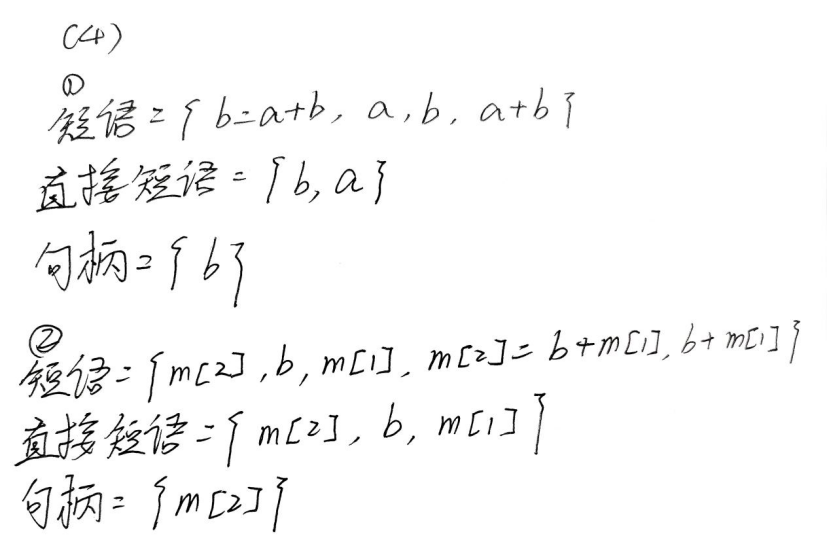 (4)
①
短语={b=a+b, a, b, a+b}
直接短语={b, a}
句柄={b}
②
短语={m[2], b, m[1], m[2]=b+m[1], b+m[1]}
直接短语={m[2], b, m[1]}
句柄={m[2]}